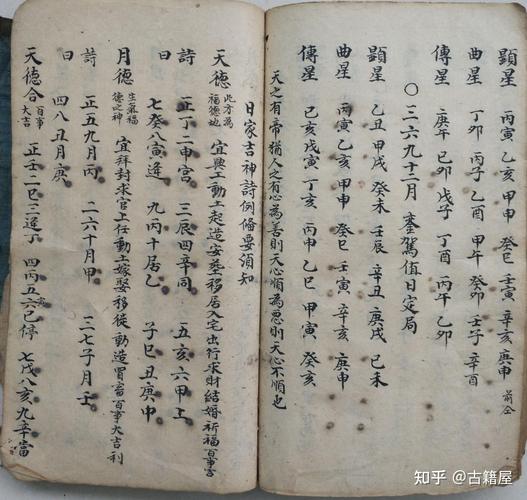 顯星 丙寅 乙亥 甲申 癸巳 壬寅 辛亥 庚申
曲星 丁卯 丙子 乙酉 甲午 癸卯 壬子 辛酉 前仝
傳星 庚午 己卯 戊子 丁酉 丙午 乙卯
〇三六九十二月 鑾駕值日定局
顯星 乙丑 甲戌 癸未 壬辰 辛丑 庚戌 己未
曲星 丙寅 乙亥 甲申 癸巳 壬寅 辛亥 庚申
傳星 己亥 戊寅 丁亥 丙申 乙巳 甲寅 癸亥
天之有帝猶人之有心為善則天心順為惡則天心不順也
日家吉神詩例俻要須知
天德 此方為福德也 宜興工動土起造安葬移居入宅出行求財結婚祈福百事吉
詩 正丁二申宮 三辰四辛同 五亥六甲上
曰 七癸八寅逢 九丙十居乙 子巳丑庚中
月德 生氣福德之神 宜拜封求官上任動土嫁娶移徙動造畜百事大吉利
詩 正五九月丙 二六十月甲 三七子月壬
曰 四八丑月庚
天德合 百事大吉 正壬二巳三逢丁 四丙五六巳停 七戊八亥九辛當
知乎 @古籍屋